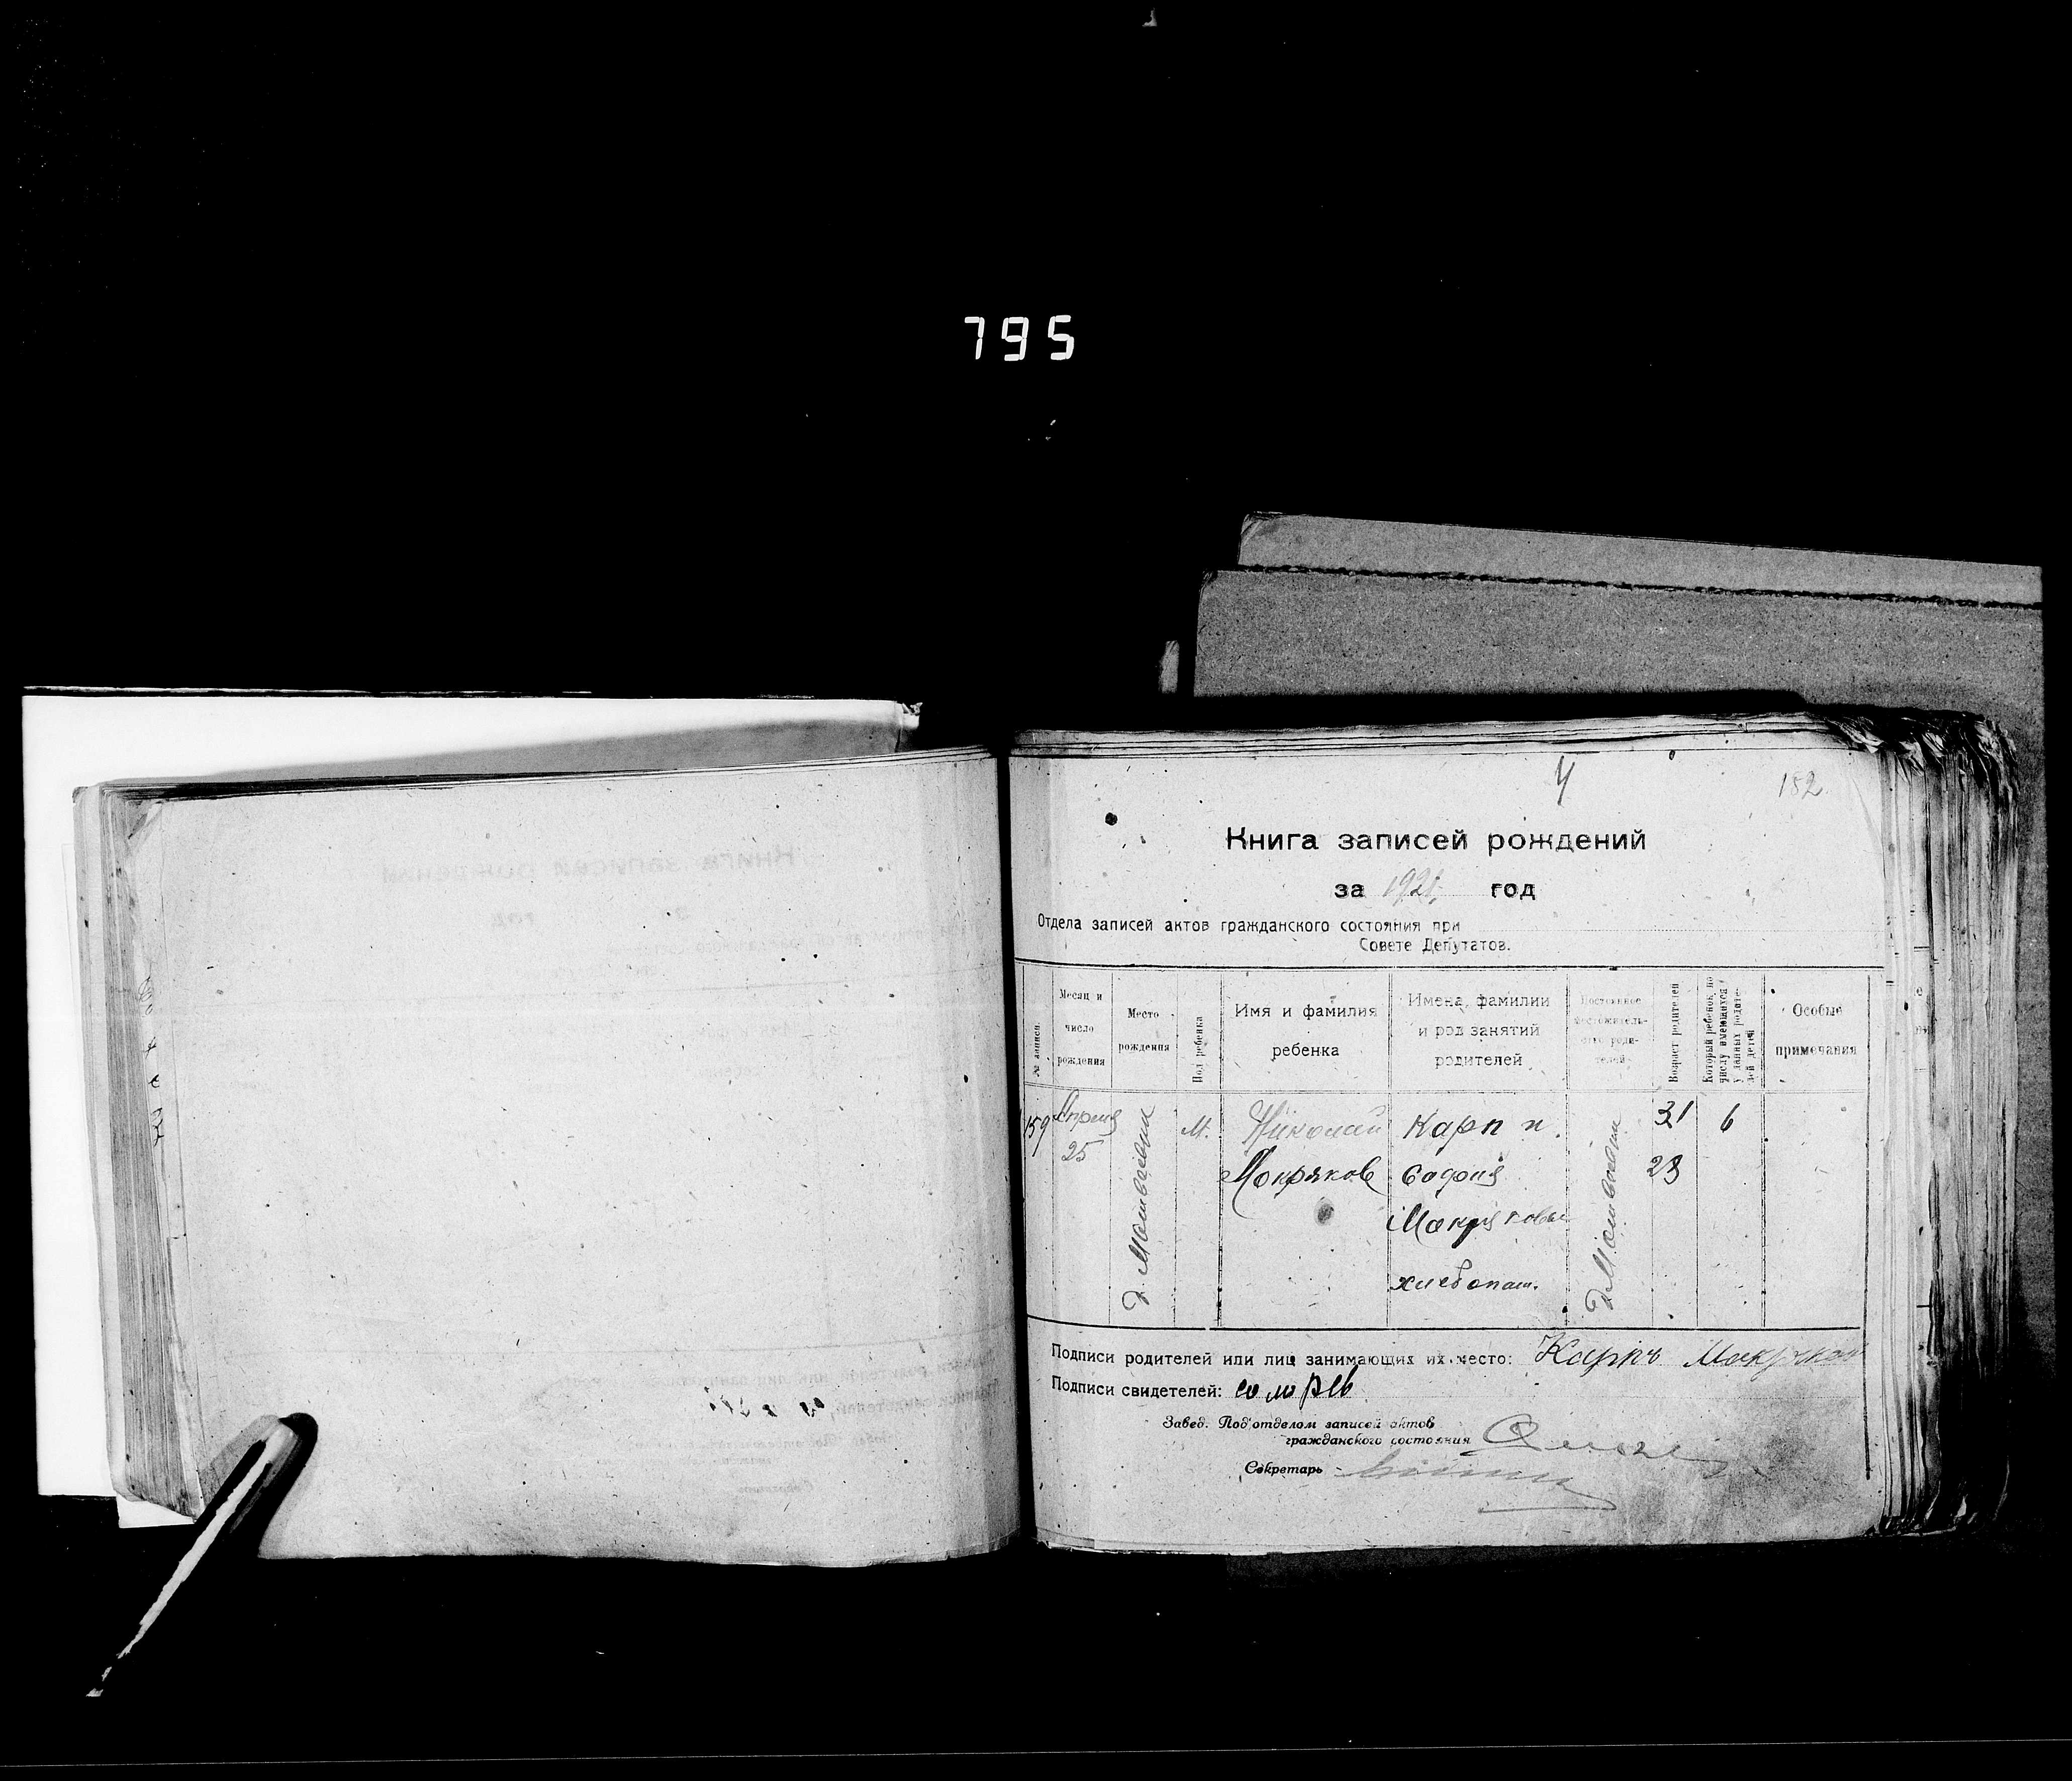 795
4
182
Книга записей рождений
за 1921 год
Отдела записей актов гражданского состояния при
Совете Депутатов.
№ записи.
Месяц и
число
рождения
Место
рождения
Пол ребенка
Имя и фамилия
ребенка
Имена, фамилии
и род занятий
родителей
Постоянное
местожитель-
ство роди-
телей
Возраст родителей
Который ребенок, по
числу имеющихся
у данных родите-
лей детей
Особые
примечания
159
Апреля
25
М.
Николай
Мокряков
Карп и
София
Мокряковы
хлебопаш.
31
23
6
Подписи родителей или лиц занимающих их место: Карпъ
Подписи свидетелей:
Завед. Под'отделом записей актов
гражданского состояния
Секретарь